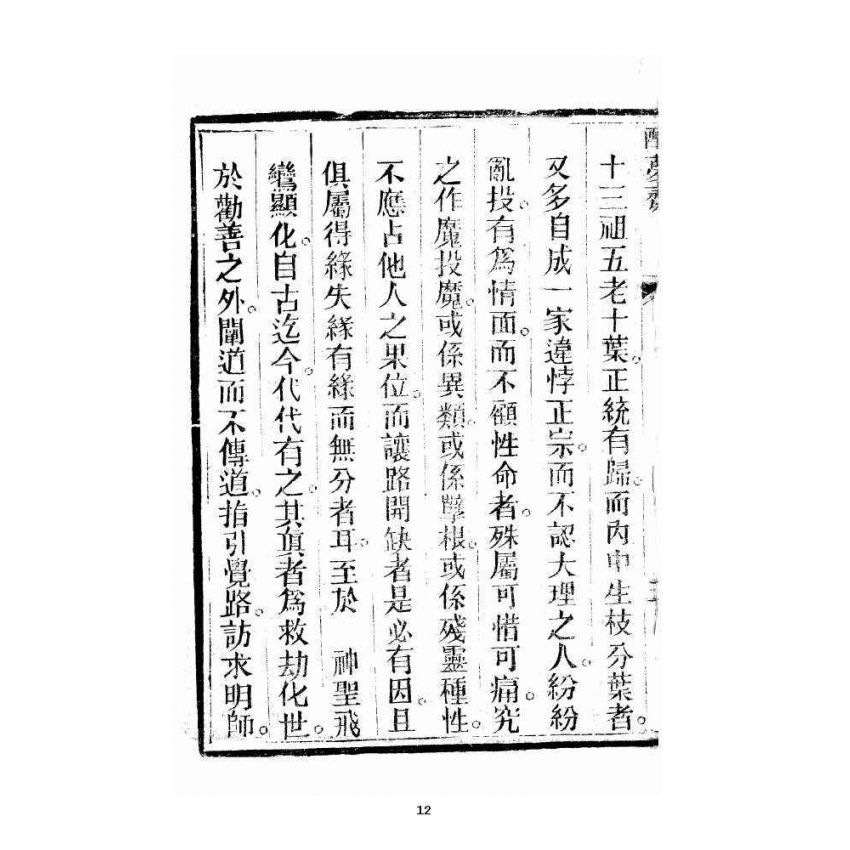 醒夢齋
十三祖五老十葉。正統有歸。而內中生枝分葉者。
又多自成一家違悖正宗。而不認大理之人。紛紛
亂投。有爲情面。而不顧性命者。殊屬可惜可痛。究
之作魔投魔。或係異類。或係孽根。或係殘靈種性。
不應占他人之果位。而讓路開缺者是必有因。且
俱屬得緣失緣有緣而無分者耳。至於　神聖飛
鸞顯化。自古迄今。代代有之。其眞者爲救劫化世。
於勸善之外。闡道而不傳道。指引覺路。訪求明師。
12